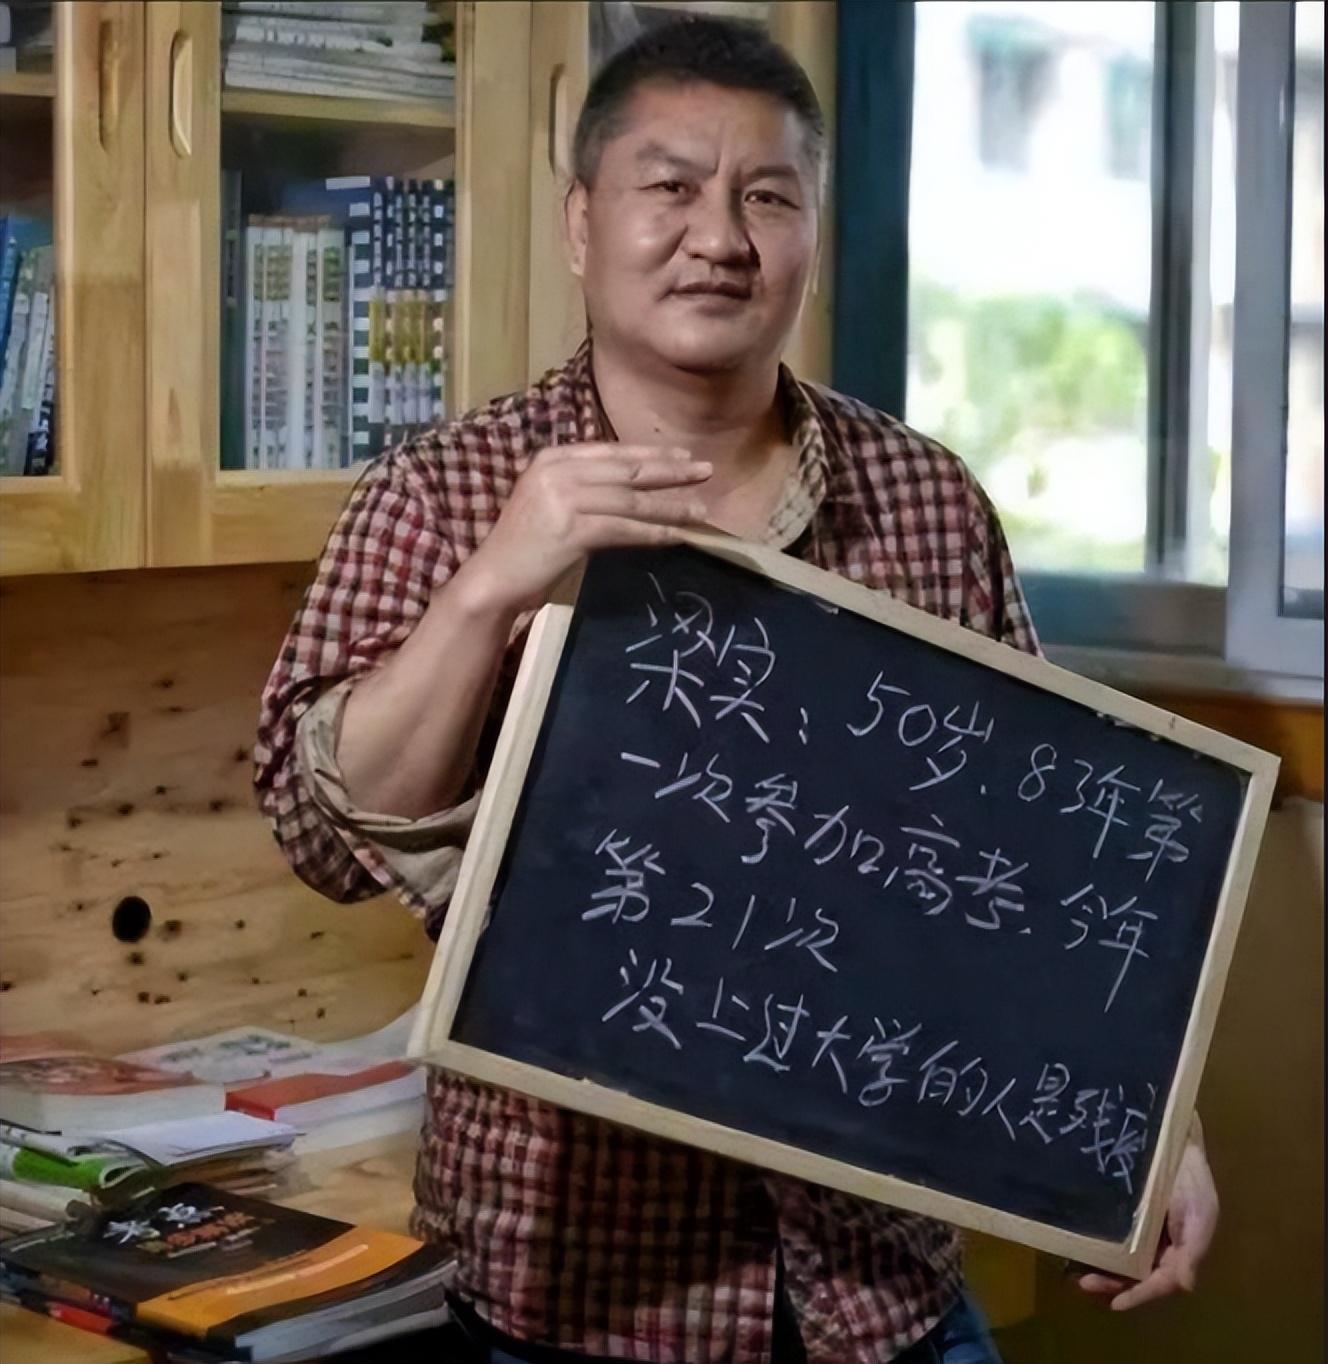 梁实：50岁、83年第
一次参加高考.今年
第21次
没上过大学的人是残废